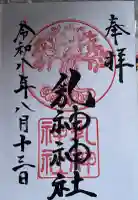 奉拝
乳神神社
令和六年八月十三日